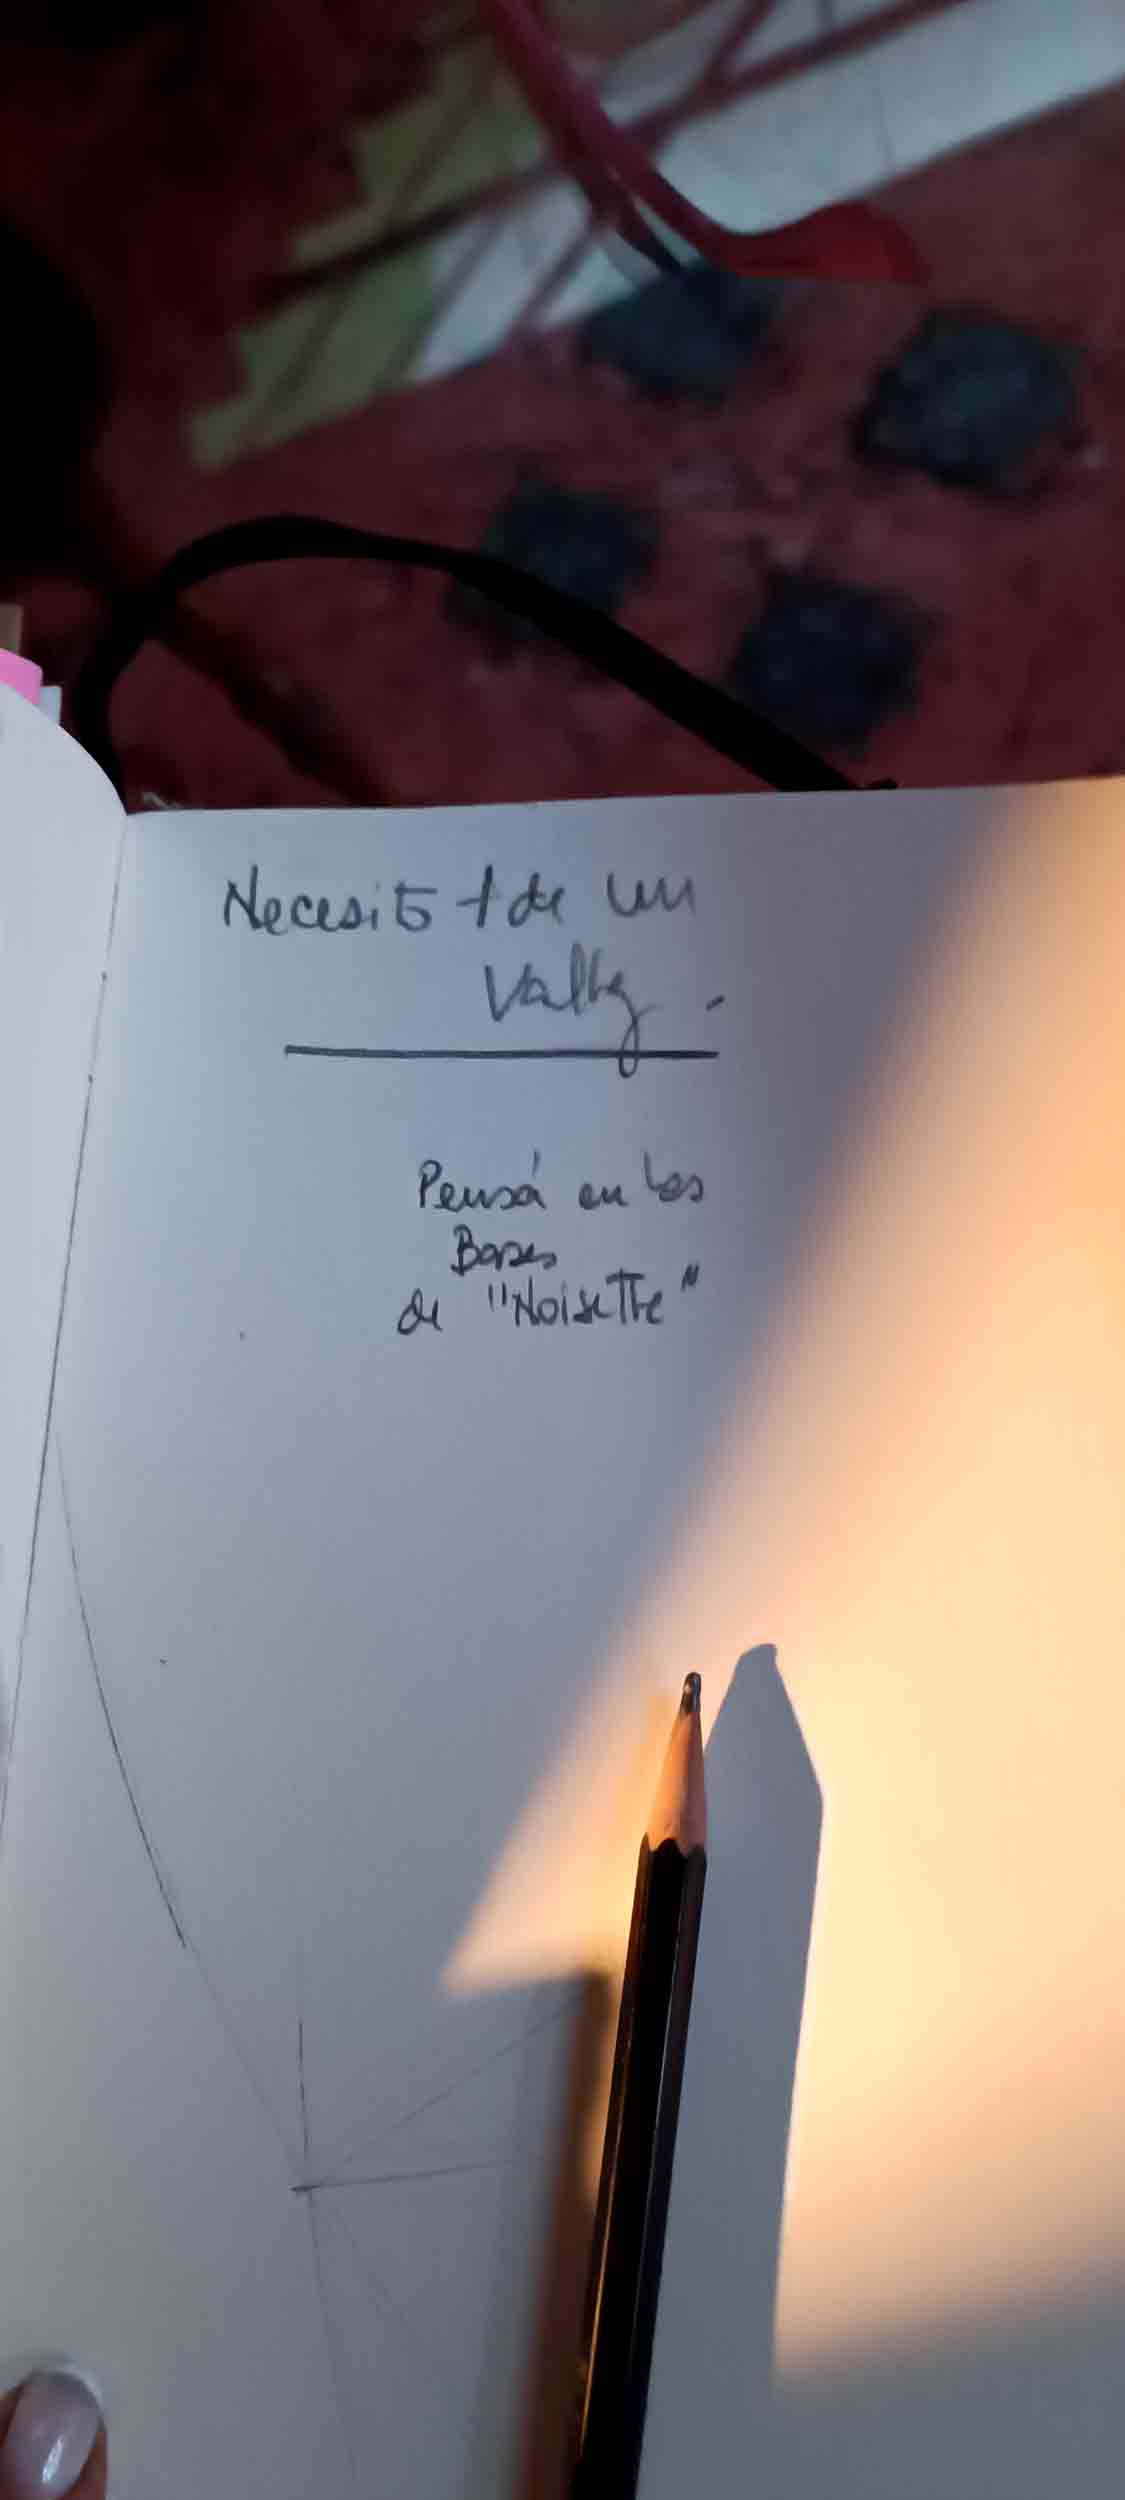 Necesito + de un
Valhz.
Pensá en las
Bases
de "Noisette"